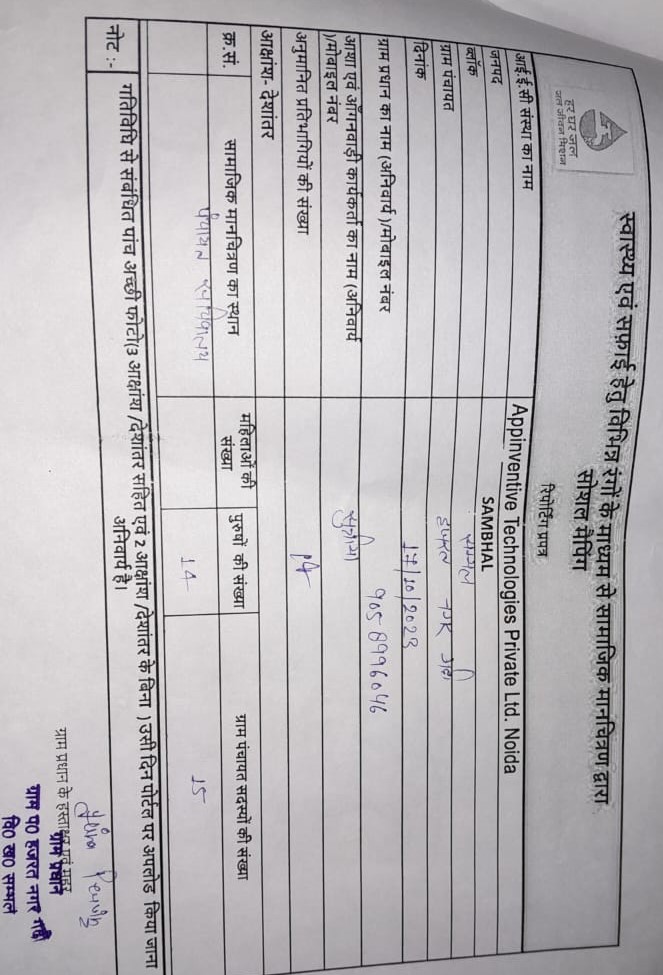 हर घर जल
जल जीवन मिशन
स्वास्थ्य एवं सफाई हेतु विभिन्न रंगों के माध्यम से सामाजिक मानचित्रण द्वारा
सोशल मैपिंग
रिपोर्टिंग प्रपत्र
आई.ई.सी संस्था का नाम Appinventive Technologies Private Ltd. Noida
जनपद SAMBHAL
ब्लॉक सम्भल
ग्राम पंचायत हजरत नगर गढी
दिनांक 17/10/2023
ग्राम प्रधान का नाम (अनिवार्य )/मोबाइल नंबर 9058996046
आशा एवं आँगनवाड़ी कार्यकर्ता का नाम (अनिवार्य
)/मोबाइल नंबर
अनुमानित प्रतिभागियों की संख्या 14
आक्षांश- देशांतर
क्र.सं. सामाजिक मानचित्रण का स्थान महिलाओं की संख्या पुरुषों की संख्या ग्राम पंचायत सदस्यों की संख्या
पंचायत सचिवालय 14 15
नोट :- गतिविधि से संबंधित पांच अच्छी फोटो(3 आक्षांश /देशांतर सहित एवं 2 आक्षांश /देशांतर के बिना ) उसी दिन पोर्टल पर अपलोड किया जाना
अनिवार्य है।
ग्राम प्रधान के हस्ताक्षर एवं मुहर
ग्राम प्रधान
ग्राम प0 हजरत नगर गढी
वि0 ख0 सम्भल